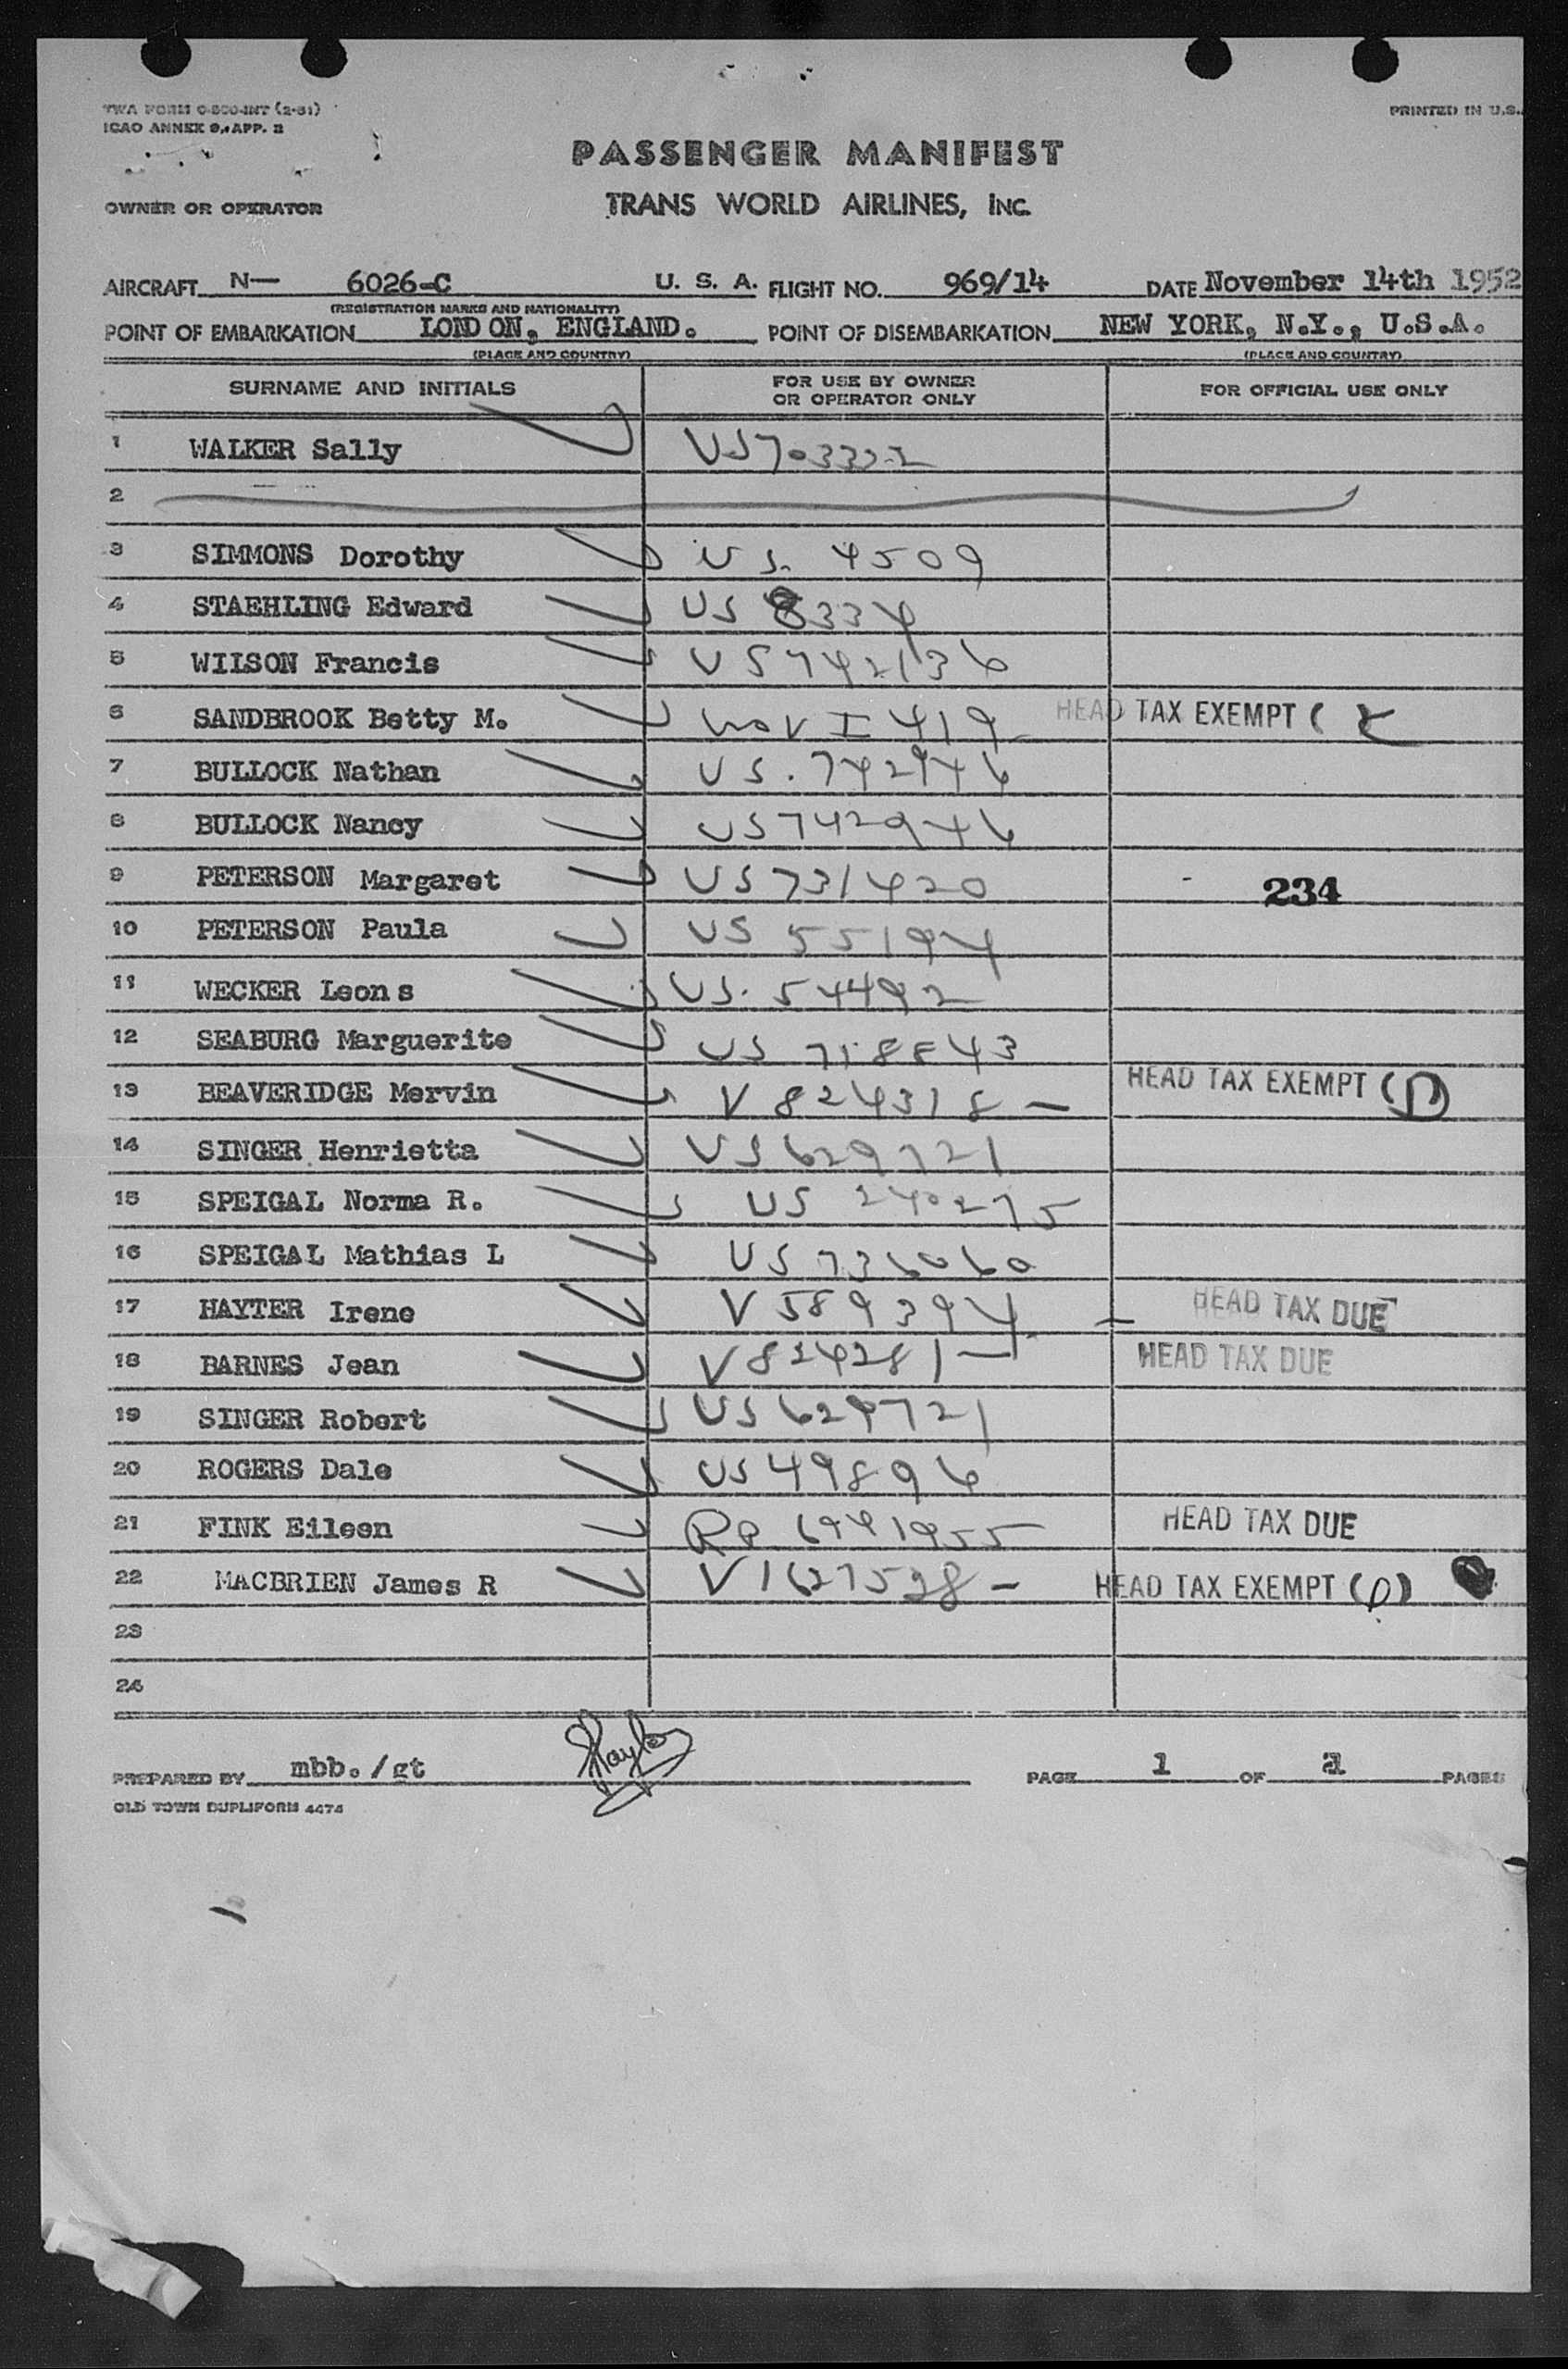 TWA FORM O-800-INT (2-51)
ICAO ANNEX 9, APP. 2
PRINTED IN U.S.
PASSENGER MANIFEST
OWNER OR OPERATOR TRANS WORLD AIRLINES, INC.
AIRCRAFT N— 6026-C U. S. A. FLIGHT NO. 969/14 DATE November 14th 1952
(REGISTRATION MARKS AND NATIONALITY)
POINT OF EMBARKATION LONDON, ENGLAND. POINT OF DISEMBARKATION NEW YORK, N.Y., U.S.A.
(PLACE AND COUNTRY) (PLACE AND COUNTRY)
SURNAME AND INITIALS FOR USE BY OWNER OR OPERATOR ONLY FOR OFFICIAL USE ONLY
1 WALKER Sally
2
3 SIMMONS Dorothy US. 4509
4 STAEHLING Edward US 8334
5 WILSON Francis US742136
6 SANDBROOK Betty M. HEAD TAX EXEMPT (
7 BULLOCK Nathan US. 742946
8 BULLOCK Nancy US742946
9 PETERSON Margaret US731420 234
10 PETERSON Paula US 55194
11 WECKER Leons US. 54492
12 SEABURG Marguerite US 718843
13 BEAVERIDGE Mervin V 824318 — HEAD TAX EXEMPT (D)
14 SINGER Henrietta US629721
15 SPEIGAL Norma R. US 240275
16 SPEIGAL Mathias L US 736060
17 HAYTER Irene V 589394 — HEAD TAX DUE
18 BARNES Jean V824281— HEAD TAX DUE
19 SINGER Robert US629721
20 ROGERS Dale US49896
21 FINK Eileen RP 6941955 HEAD TAX DUE
22 MACBRIEN James R V1627528 — HEAD TAX EXEMPT (D)
23
24
PREPARED BY mbb./gt PAGE 1 OF PAGES
OLD TOWN DUPLIFORM 4474